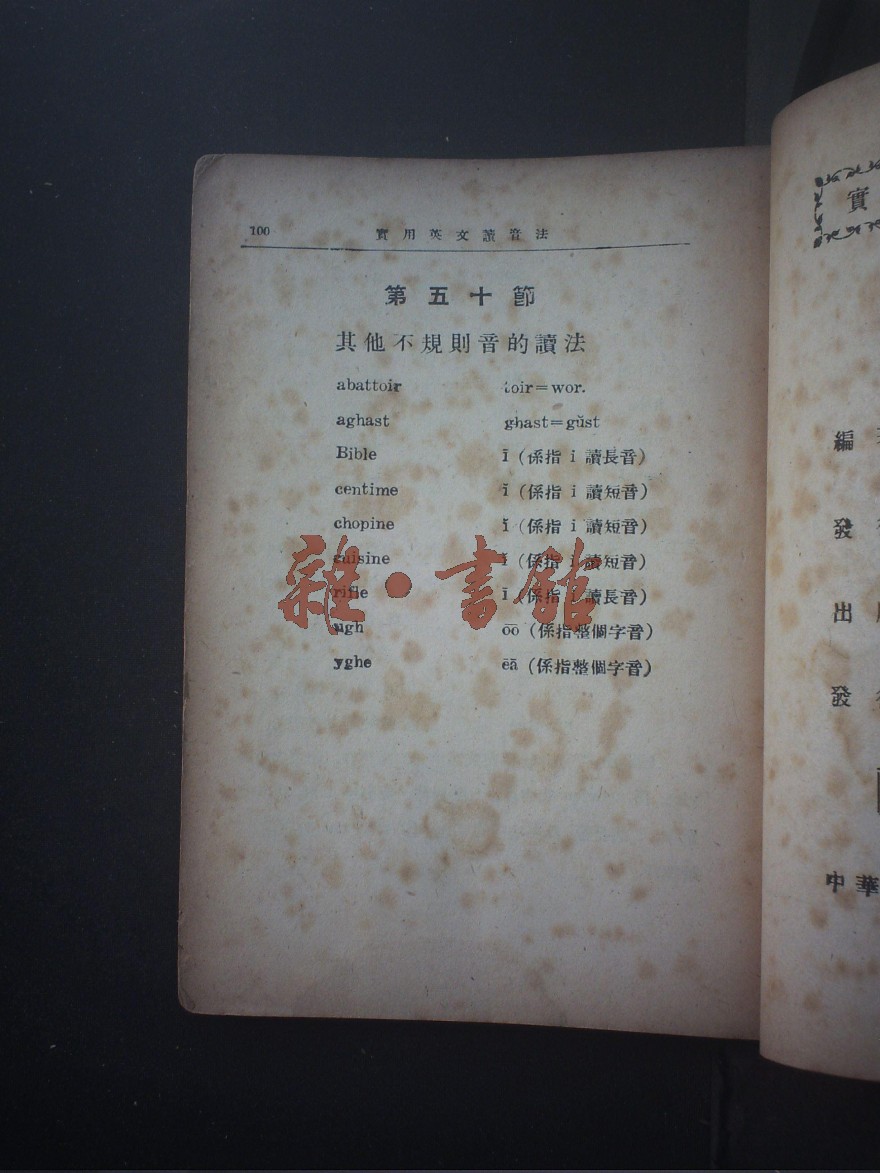 100 實用英文讀音法
第五十節
其他不規則音的讀法
abattoir toir=wor.
aghast ghast=gŭst
Bible ī (係指 i 讀長音)
centime ĭ (係指 i 讀短音)
chopine ĭ (係指 i 讀短音)
cuisine ĭ (係指 i 讀短音)
rifle ī (係指 i 讀長音)
ugh o͞o (係指整個字音)
yghe ēā (係指整個字音)
雜·書館
實
編
發
出
發
中華